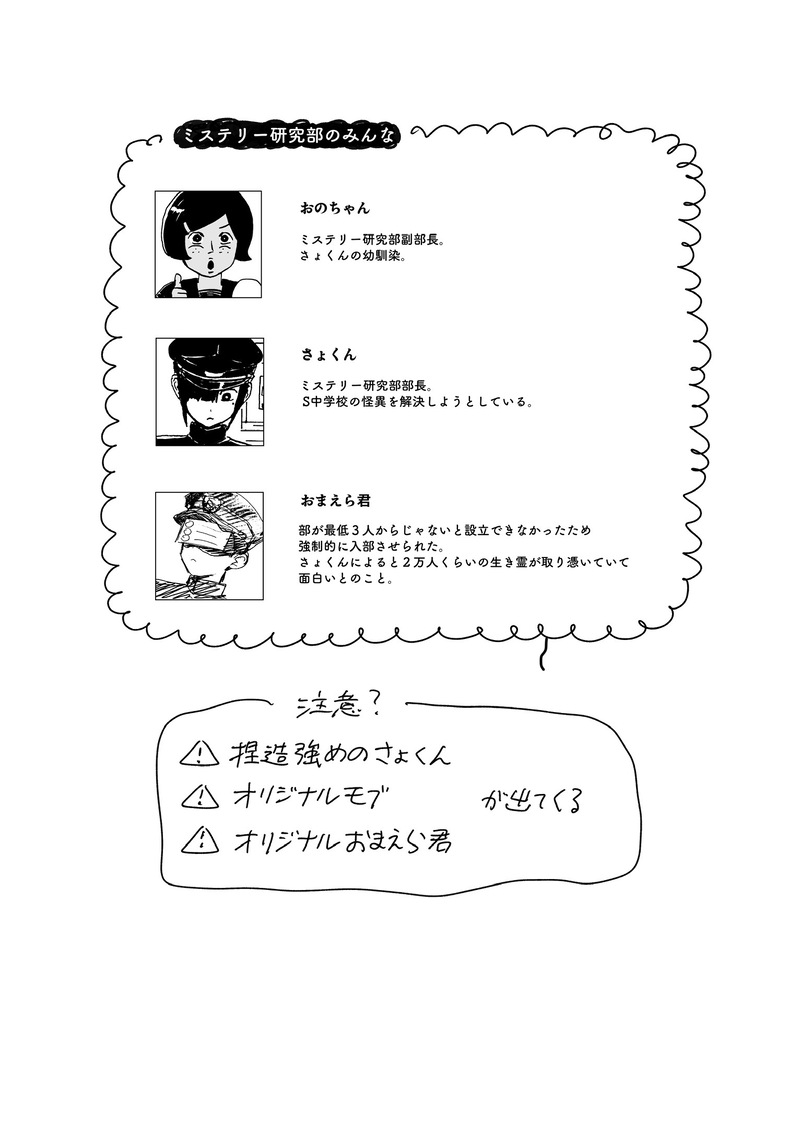 ミステリー研究部のみんな
おのちゃん
ミステリー研究部副部長。
さょくんの幼馴染。
さょくん
ミステリー研究部部長。
S中学校の怪異を解決しようとしている。
おまえら君
部が最低３人からじゃないと設立できなかったため
強制的に入部させられた。
さょくんによると２万人くらいの生き霊が取り憑いていて
面白いとのこと。
注意？
⚠捏造強めのさょくん
⚠オリジナルモブ
⚠オリジナルおまえら君
が出てくる